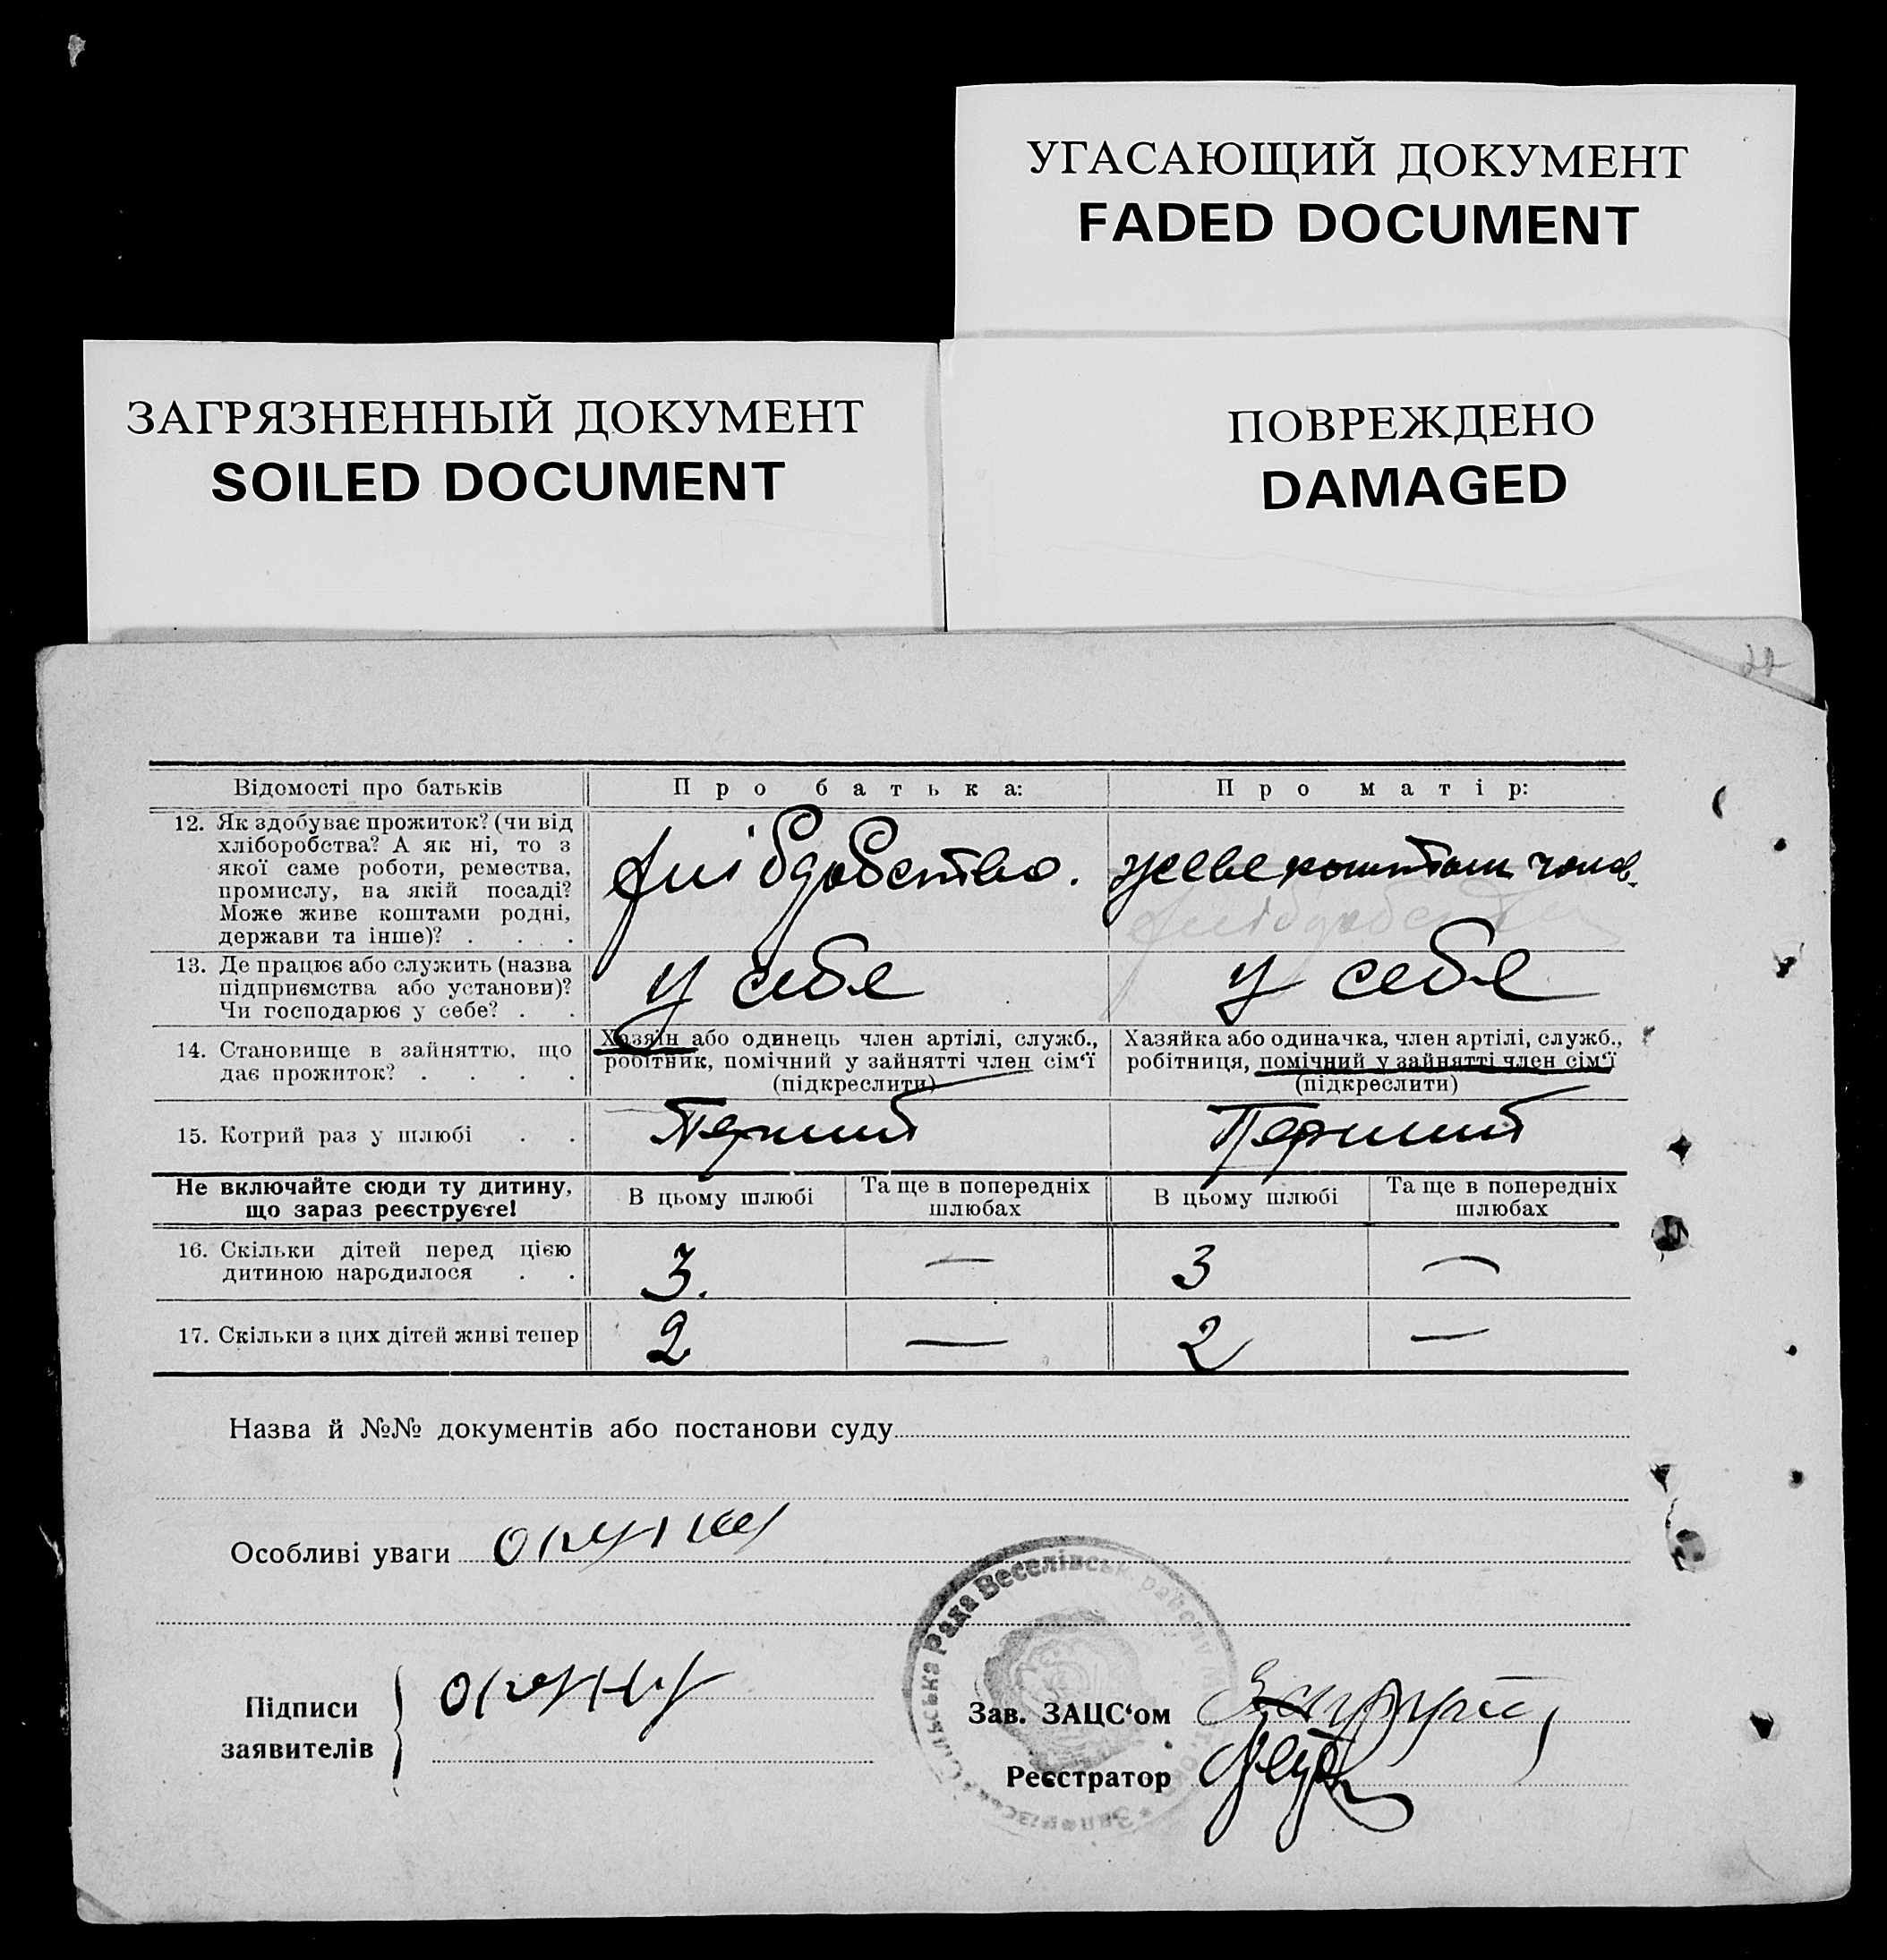 УГАСАЮЩИЙ ДОКУМЕНТ
FADED DOCUMENT
ЗАГРЯЗНЕННЫЙ ДОКУМЕНТ
SOILED DOCUMENT
ПОВРЕЖДЕНО
DAMAGED
Відомості про батьків
Про батька:
Про матір:
12. Як здобуває прожиток? (чи від
хліборобства? А як ні, то з
якої саме роботи, ремества,
промислу, на якій посаді?
Може живе коштами родні,
держави та інше)? . . . .
живе коштами чолов.
13. Де працює або служить (назва
підприємства або установи)?
Чи господарює у себе? . .
у себе
у себе
14. Становище в зайняттю, що
дає прожиток? . . . .
Хазяїн або одинець член артілі, служб.,
робітник, помічний у зайнятті член сім‘ї
(підкреслити)
Хазяйка або одиначка, член артілі, служб.,
робітниця, помічний у зайнятті член сім‘ї
(підкреслити)
15. Котрий раз у шлюбі . .
Перший
Перший
Не включайте сюди ту дитину,
що зараз реєструєте!
В цьому шлюбі
Та ще в попередніх
шлюбах
В цьому шлюбі
Та ще в попередніх
шлюбах
16. Скільки дітей перед цією
дитиною народилося . .
3.
—
3
—
17. Скільки з цих дітей живі тепер
2
—
2
—
Назва й №№ документів або постанови суду
Особливі уваги
Підписи
заявителів
Зав. ЗАЦС‘ом
Реєстратор
Сільська Рада Веселівськ. району